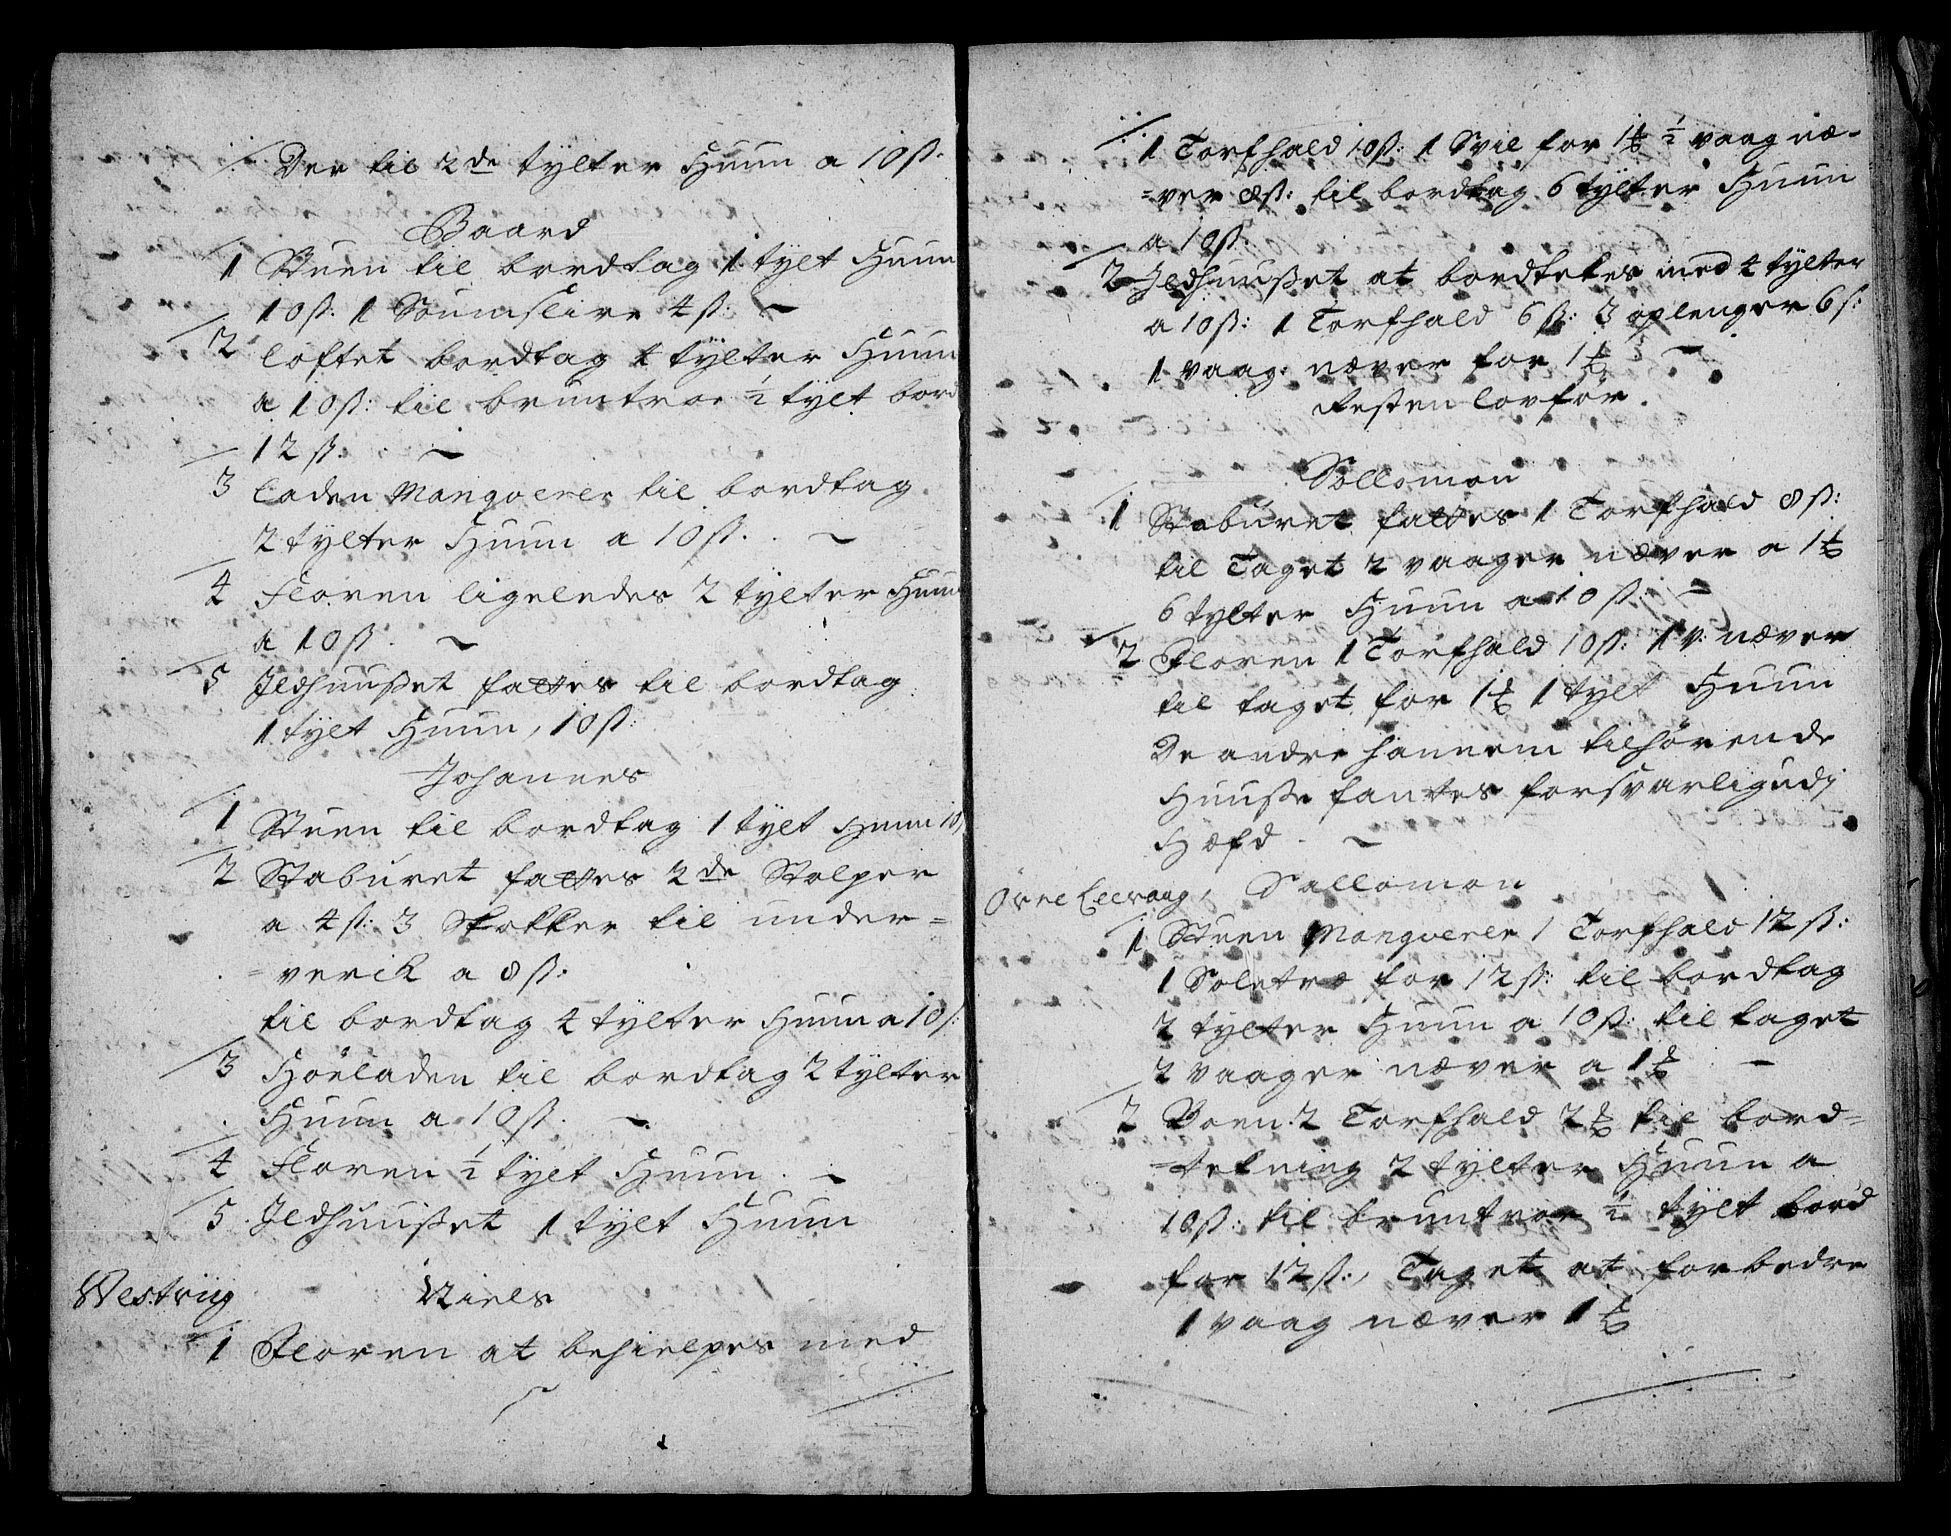 Der til 2de tylter Huun a 10 ß.
Baard
1 Stuen til bordtag 1 tylt Huun
10 ß: 1 Soumsleire 4 ß:
2 loftet bordtag 4 tylter Huun
a 10 ß: til bruntroe ½ tylt bord
12 ß.
3 laden Manqverer til bordtag
2 tylter Huun a 10 ß.
4 Floren ligeledes 2 tylter Huun
a 10 ß.
5 Jldhuusset fattes til bordtag
1 tylt Huun, 10 ß:
Johannes
1 Stuen til bordtag 1 tylt Huun 10
2 Staburet fattes 2de Stolper
a 4 ß: 3 Stokker til under=
=verck a 8 ß:
til bordtag 4 tylter Huun a 10 ß:
3 Höeladen til bordtag 2 tylter
Huun a 10 ß.
4 Floren ½ tylt Huun.
5 Jldhuusset 1 tylt Huun
Westviig Niels
1 Floren at behielpes med
1 Torfhald 10 ß: 1 Svil for 1 ½ vaag næ-
=ver 8 ß: til bordtag 6 tylter Huun
a 10 ß:
2 Jldhuusset at bordtekes med 4 tylter
a 10 ß: 1 Torfhald 6 ß: 3 oplenger 6 ß:
1 vaag næver for 1
Resten lovfør.
Sallomon
1 Staburet fattes 1 Torfhald 8 ß:
til Taget 2 vaager næver a 1
6 tylter Huun a 10 ß.
2 Floren 1 Torfhald 10 ß: 1 v: næver
til taget for 1 1 tylt Huun
De andre hannem tilhörende
Huusse fantes forsvarlig udj
Hæfd.
Sallomon
1 Stuen Manqverer 1 Torfhald 12 ß:
1 Soletræ for 12 ß: til bordtag
2 tylter Huun a 10 ß: til taget
2 vaager næver a 1
2 Boen 2 Torfhald 2 til bord=
=tekning 2 tylter Huun a
10 ß: til bruntroe ½ tylt bord
for 12 ß:, Taget at forbedre
1 vaag næver 1